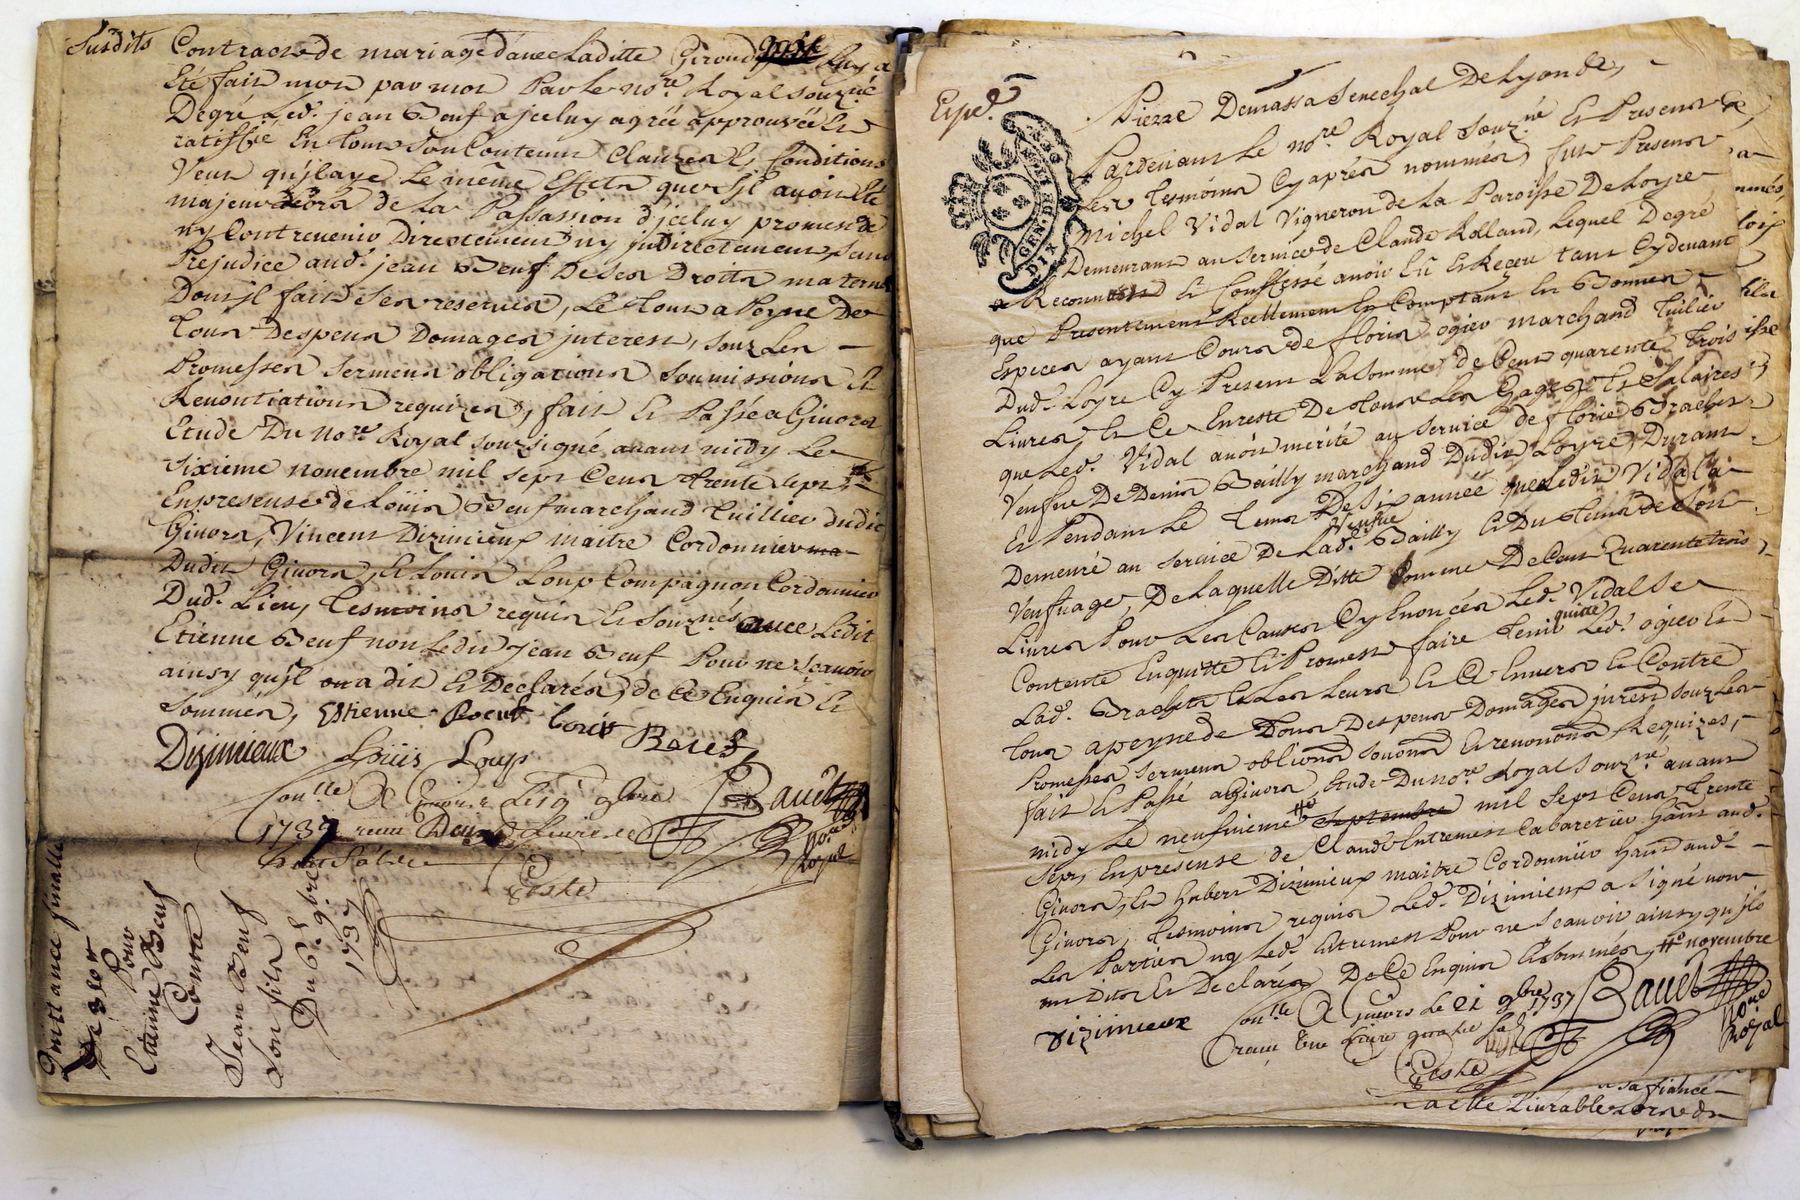 Susdits Contract de mariage d'avec laditte Giroud luy a
Eté fait mot par mot Par le no.re Royal souz.né
Degré led. jean Boeuf a jceluy agréé approuvée et
ratiffié En tout son Contenu Clauzes et Conditions
Veut qu'jl aye le même Effets que s'jl avoit Eté
majeur Lors de la Passassion d'jceluy promet de
ny Contrevenir Directement ny jndirectement, sans
Préjudice aud. jean Boeuf De ses Droits maternels
Dont jl fait ses reserves, Le tout a Peyne De
tous Despens Domages jnterest, souz Les
Promesses serment obligations soumissions et
Renontiations requizes, fait et Passé a Givors
Etude Du No.re Royal souz signé avant midy Le
sixieme novembre mil sept Cens trente sept
En presense de Loüis Boeuf marchand Tuillier dudit
Givors, Vincent Dizimieux maitre Cordonnier
Dudit Givors, et Louis Loup Compagnon Cordonnier
Dud. Lieu, tesmoins requis et souz.nés avec Ledit
Etienne Boeuf non Ledit jean Boeuf Pour ne Scavoir
ainsy qu'jl a dit et Declaré, de Ce Enquis et
sommés, Estienne Boeuf Louis Boeuf
Dizimieux Loüis Loup
Con.lle A Givors Le 9 9bre Bavet
1737 receu Deux Livres No.re Royal
Teste
Quittance finalle
Pour
Etienne Boeuf
Contre
Jean Boeuf
son fils
Du 6e 9bre
1737
Expé.
Pierre Demassa Senechal De Lyon &c,
GEN. DE LYON
DIX
Pardevant Le no.re Royal souz.né Et Present
Les tesmoins Cy aprés nommés, fut Present
Michel Vidal Vigneron de La Paroisse De Loyre
Demeurant au Service de Claude Rolland, Lequel Degré
a Reconnu et Confessé avoir Eû et Receu tant Cy devant
que Presentement Reellement Comptant En Bonnes
Especes ayant Cours de floris ogier marchand Tuilier
Dud. Loyre Cy Present La somme de Cent quarente trois
Livres, et Ce En reste De tous Les Gages et Salaires
que Led. Vidal avoit merité au service de florie Brachet
Veufve De Denis Bailly marchand Dudit Loyre, Durant
Et Pendant Le tems De Six année que Ledit Vidal a
Demeuré au service De Lad. Veufve Bailly Et Du tems De Son
Veufvage, De Laquelle Ditte somme De Cent Quarente trois
Livres Pour Les Causes Cy Enoncés Led. Vidal Se
Contente En quitte Et Promest faire tenir quitte Led. ogier Et
Lad. Brachet Et Les Leurs Et Ce Envers Et Contre
tous a peyne de tous Despens Domages jnterest souz Les
Promesses serment obligons soumons Et renontions Requizes,
fait Et Passé a Givors, Etude Du No.re Royal souz.né, avant
midy Le neufvieme # septembre mil sept Cens trente
sept, En presense de Claude Entremest Cabaretier hant aud.
Givors, Et hubert Dizimieux maitre Cordonnier hant aud.
Givors, tesmoins requis Led. Dizimieux a signé non
Les Parties ny Led. Entremest Pour ne Scavoir ainsy qu'jls
ont Dit Et Declaré, De Ce Enquis Et sommés, # novembre
Dizimieux Con.lle A Givors Le 21 9bre 1737 Bavet
receu Une Livre quatre Sols No.re Royal
Teste
a sa fiancé